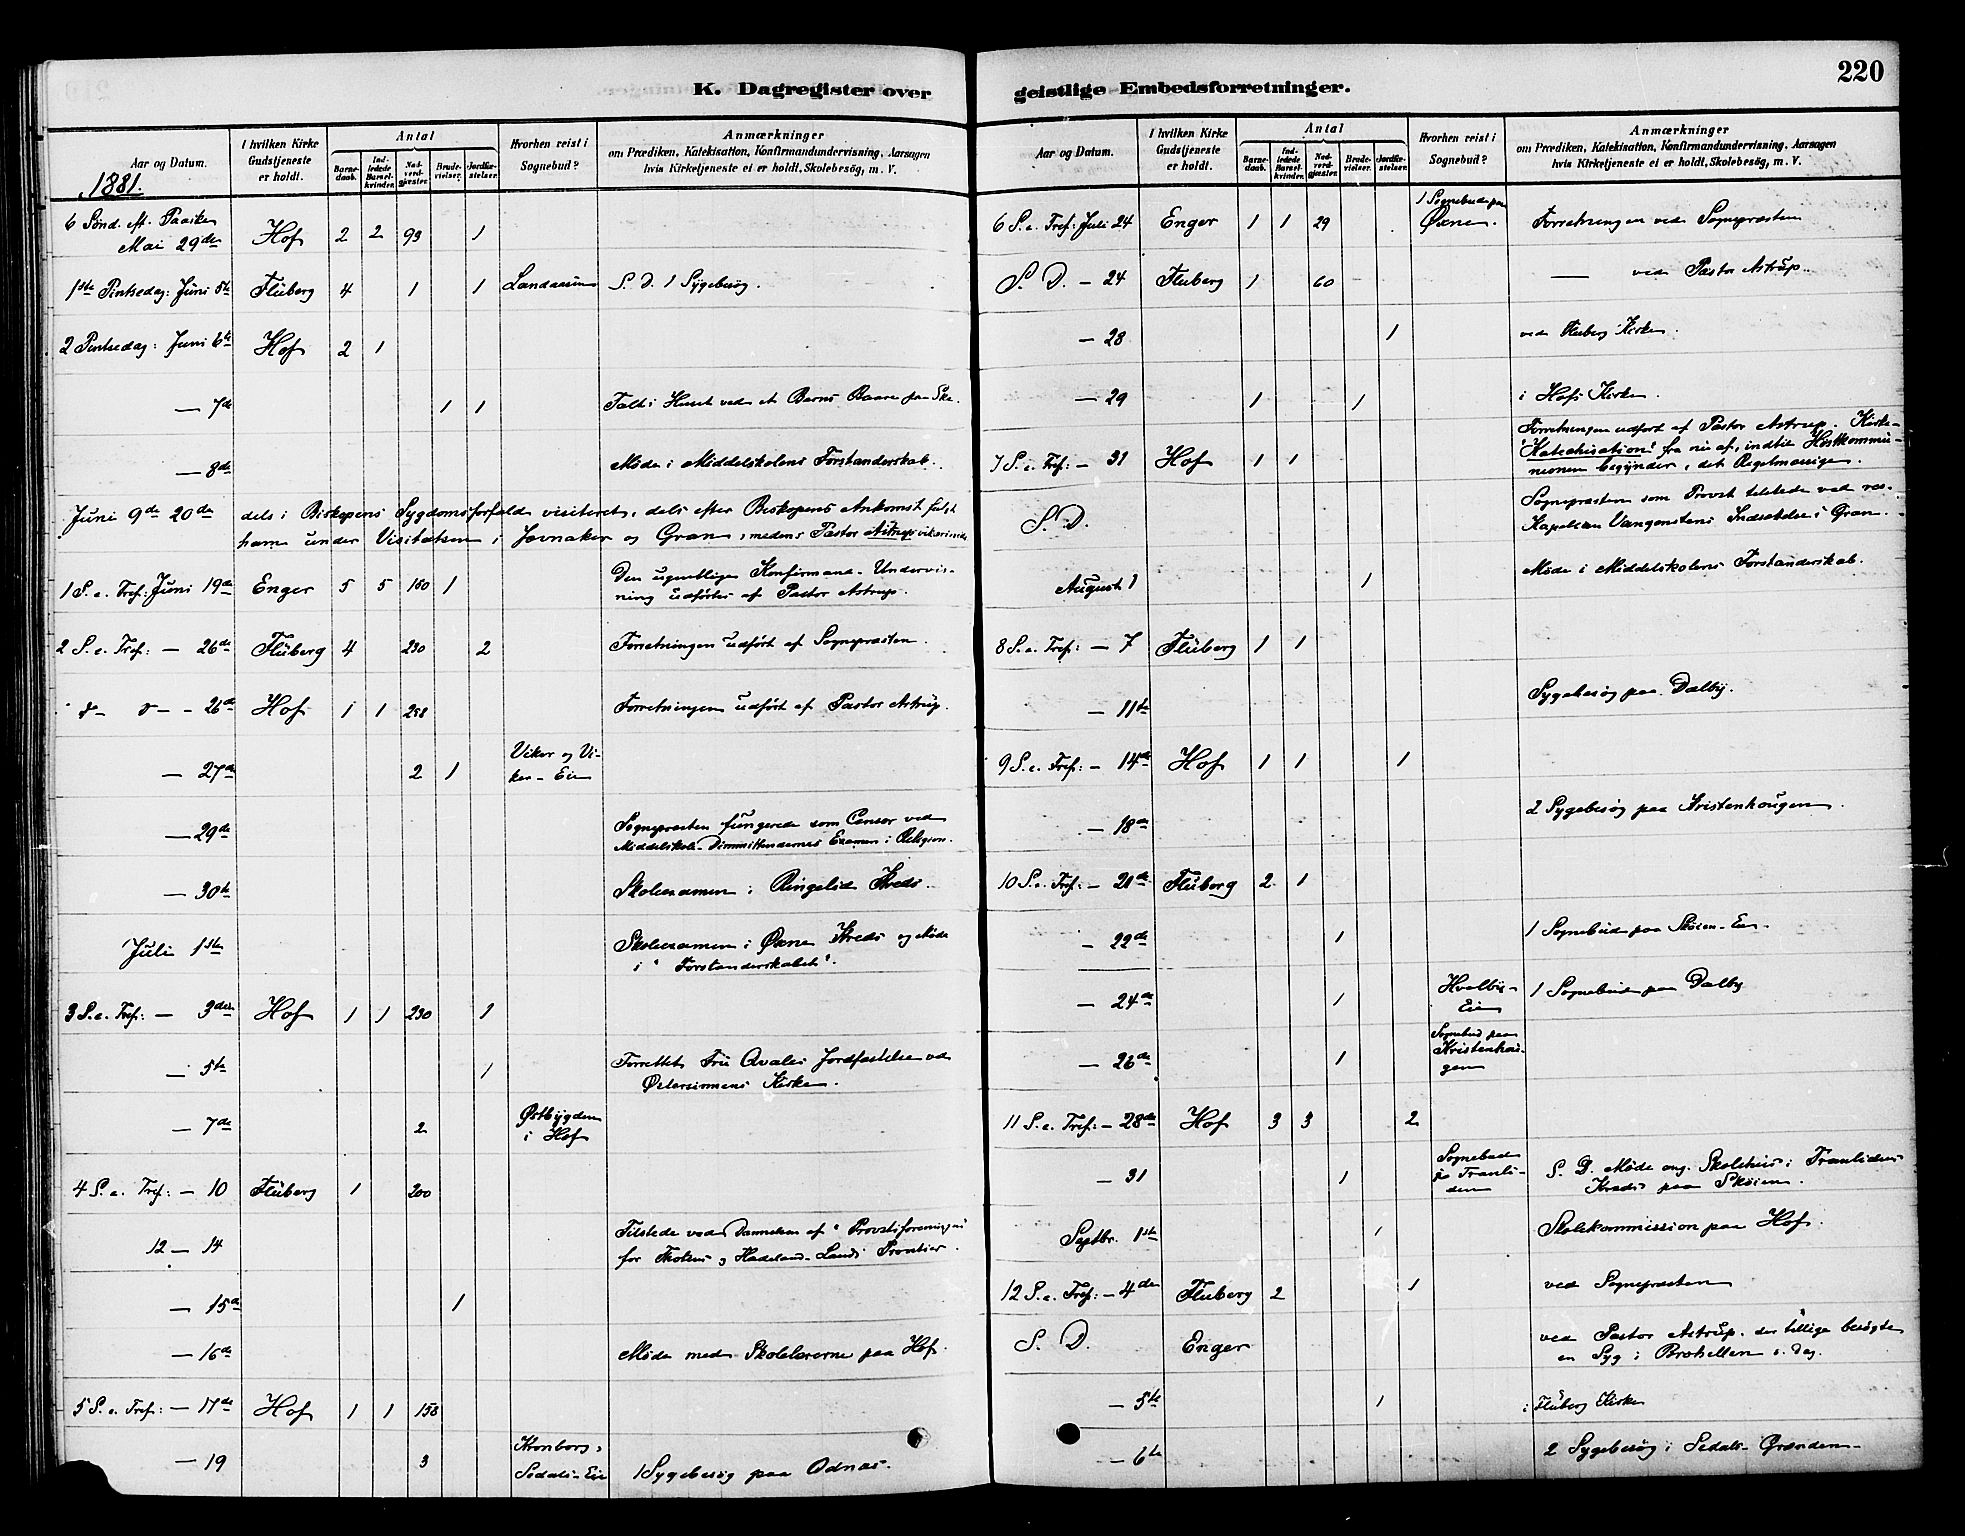 K. Dagregister over
geistlige Embedsforretninger.
220
Aar og Datum.
I hvilken Kirke Gudstjeneste er holdt.
Antal
Barnedaab.
Indledede Barselkvinder.
Nadverdgjæster.
Brudevielser.
Jordfæstelser.
Hvorhen reist i Sognebud?
Anmærkninger
om Prædiken, Katekisation, Konfirmandundervisning, Aarsagen
hvis Kirketjeneste ei er holdt, Skolebesög, m. V.
1881.
6 Sønd. eft. Paaske
Mai 29de Hof 2 2 93 1
1ste Pintsedag: Juni 5te Fluberg 4 1 1 Landaasen S. D. 1 Sygebesøg.
2 Pintsedag: Juni 6te Hof 2 1
— 7de 1 1 Talt i Huset ved et Barns Baare paa
— 8de Møde i Middelskolens Forstanderskab.
Juni 9de 20de dels i Biskopens Sygdomsforfald visiteret, dels efter Biskopens Ankomst fulgt
ham under Visitatsen i Jevnaker og Gran, medens Pastor Astrup vikarierede
1 S. e. Tref: Juni 19de Enger 5 5 160 1 Den ugentlige Konfirmand-Undervis-
ning udførtes af Pastor Astrup.
2 S. e. Tref: — 26de Fluberg 4 230 2 Forretningen udført af Sognepræsten.
— 26de Hof 1 1 Forretningen udført af Pastor Astrup.
— 27de 2 1 Viker og Vi-
ker-Eie
— 29de Sognepræsten fungerede som Censor ved
Middelskole-Dimittendernes Examen i Religion.
— 30te Skoleexamen i Ringelid Kreds.
Juli 1ste Skoleexamen i Øxne Kreds og Møde
i "Forstanderskabet".
3 S. e. Tref: — 3die Hof 1 1 230 1
— 5te 1 Forrettet Fru Qvales Jordfæstelse ved
Østersinnens Kirke.
— 7de 2 Østbygden
i Hof
4 S. e. Tref: — 10 Fluberg 1 200
12 — 14 Tilstede ved Dannelsen af "Provstiforeningen
for Totens og Hadeland-Lands Provstier.
— 15de 1
— 16de Møde med Skolelærerne paa Hof.
5 S. e. Tref: — 17de Hof 1 1 150
— 19 3 Kronborg,
Sedals-Eie 1 Sygebesøg paa Odnæs.
Aar og Datum.
I hvilken Kirke Gudstjeneste er holdt.
Antal
Barnedaab.
Indledede Barselkvinder.
Nadverdgjæster.
Brudevielser.
Jordfæstelser.
Hvorhen reist i Sognebud?
Anmærkninger
om Prædiken, Katekisation, Konfirmandundervisning, Aarsagen
hvis Kirketjeneste ei er holdt, Skolebesög, m. V.
1 Sognebud paa
6 S. e. Tref: Juli 24 Enger 1 1 29 Øxne. Forretningen ved Sognepræsten
S. D. — 24 Fluberg 1 60 — ved Pastor Astrup.
— 28 1 ved Fluberg Kirke.
— 29 1 1 i Hofs Kirke.
7 S. e. Tref: — 31 Hof 1 1 Forretningen udført af Pastor Astrup. Kirke-
"Katechisation" fra nu af, indtil Høstkommu-
nionen begynder, det Regelmæssige.
S. D. Sognepræsten som Provst tilstede ved res.
Kapellan Vangenstens Indsættelse i Gran.
August 1 1 Møde i Middelskolens Forstanderskab.
8 S. e. Tref: — 7 Fluberg 1 1
— 11te Sygebesøg paa Dalby.
9 S. e. Tref: — 14de Hof 1 1 1
— 18de 2 Sygebesøg paa Kristenhougen.
10 S. e. Tref: — 21de Fluberg 2 1
— 22de 1 1 Sognebud paa Skøien-Eie.
— 24de 1 Hvalby-
Eie 1 Sognebud paa Dalby
— 26de 1 Sognebud paa
Kristenhou-
gen
11 S. e. Tref: — 28de Hof 3 3 2
— 31 1 Sognebud
på Tranli-
den S. D. Møde ang. Skolehus i Tranlidens
Kreds paa Skøien.
Septbr. 1ste 1 Skolekommission paa Hof.
12 S. e. Tref: — 4de Fluberg 2 1 ved Sognepræsten
S. D. Enger ved Pastor Astrup, der tillige besøgte
en Syg i s. Dag.
— 5te 1 i Fluberg Kirke
— 6te 2 Sygebesøg i Sedals-Grænden